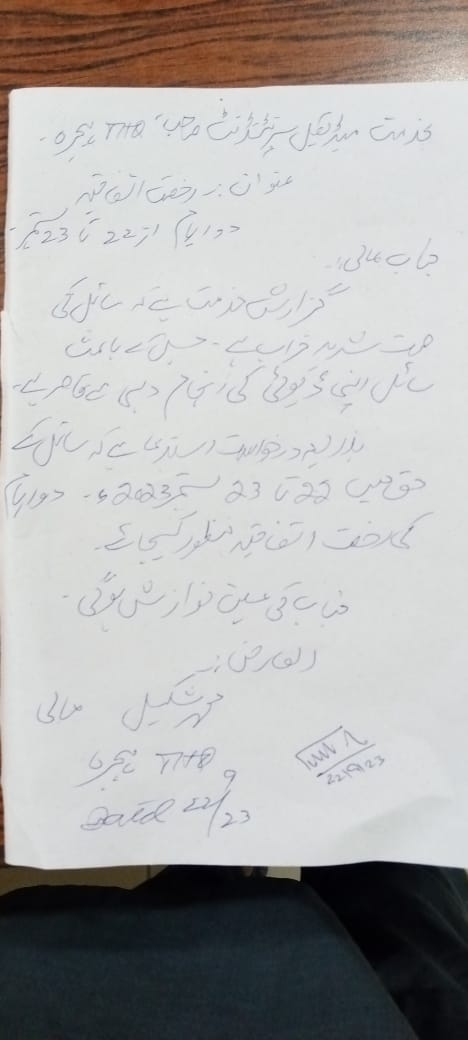 بخدمت میڈیکل سپرنٹنڈنٹ صاحب THQ ہجیرہ۔
عنوان:۔ رخصت اتفاقیہ
دو ایام از 22 تا 23 ستمبر
جناب عالی!۔
گزارش خدمت ہے کہ سائل کی
صحت شدید خراب ہے۔ جس کے باعث
سائل اپنی ڈیوٹی کی انجام دہی سے قاصر ہے۔
بذریعہ درخواست استدعا ہے کہ سائل کے
حق میں 22 تا 23 ستمبر 2023ء۔ دو ایام
کی رخصت اتفاقیہ منظور کی جائے۔
جناب کی عین نوازش ہوگی۔
العارض:۔
محمد شکیل مالی
THQ ہجیرہ
Dated 22/9/23
22/9/23